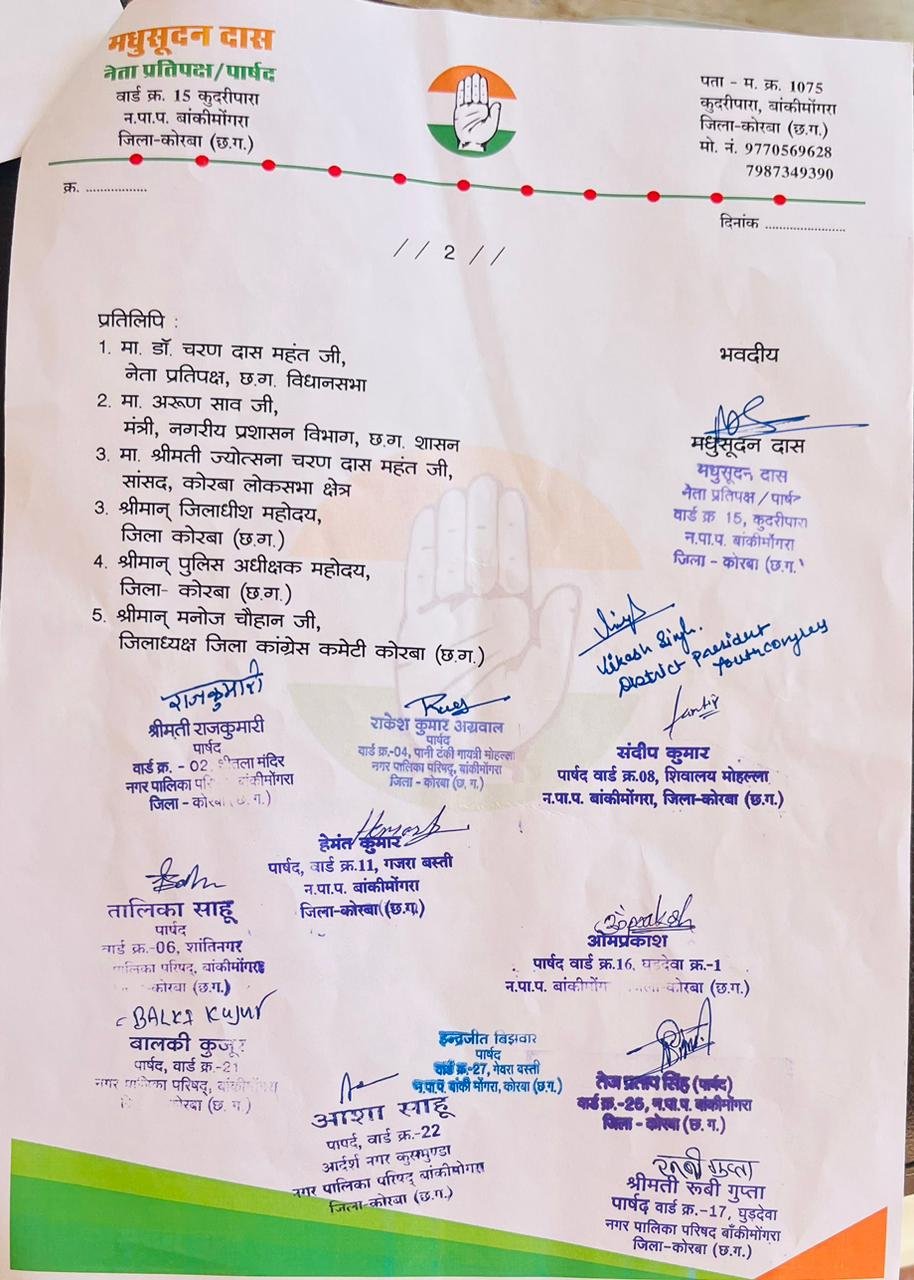 मधुसूदन दास
नेता प्रतिपक्ष/पार्षद
वार्ड क्र. 15 कुदरीपारा
न.पा.प. बांकीमोंगरा
जिला-कोरबा (छ.ग.)
पता - म. क्र. 1075
कुदरीपारा, बांकीमोंगरा
जिला-कोरबा (छ.ग.)
मो. नं. 9770569628
7987349390
क्र. .................
दिनांक ......................
// 2 //
प्रतिलिपि :
1. मा. डॉ. चरण दास महंत जी,
नेता प्रतिपक्ष, छ.ग. विधानसभा
2. मा. अरूण साव जी,
मंत्री, नगरीय प्रशासन विभाग, छ.ग. शासन
3. मा. श्रीमती ज्योत्सना चरण दास महंत जी,
सांसद, कोरबा लोकसभा क्षेत्र
3. श्रीमान् जिलाधीश महोदय,
जिला कोरबा (छ.ग.)
4. श्रीमान् पुलिस अधीक्षक महोदय,
जिला- कोरबा (छ.ग.)
5. श्रीमान् मनोज चौहान जी,
जिलाध्यक्ष जिला कांग्रेस कमेटी कोरबा (छ.ग.)
भवदीय
मधुसूदन दास
मधुसूदन दास
नेता प्रतिपक्ष / पार्षद
वार्ड क्र 15, कुदरीपारा
न.पा.प. बांकीमोंगरा
जिला - कोरबा (छ.ग.
Vikash Singh.
District President
Youth congress
राजकुमारी
श्रीमती राजकुमारी
पार्षद
वार्ड क्र. - 02, शीतला मंदिर
नगर पालिका परि बांकीमोंगरा
जिला - कोरबा (छ. ग.)
राकेश कुमार अग्रवाल
पार्षद
वार्ड क्र.-04, पानी टंकी गायत्री मोहल्ला
नगर पालिका परिषद्, बांकीमोंगरा
जिला - कोरबा (छ. ग.)
संदीप कुमार
पार्षद वार्ड क्र.08, शिवालय मोहल्ला
न.पा.प. बांकीमोंगरा, जिला-कोरबा (छ.ग.)
हेमंत कुमार
पार्षद, वार्ड क्र.11, गजरा बस्ती
न.पा.प. बांकीमोंगरा
जिला-कोरबा (छ.ग.)
तालिका साहू
पार्षद
वार्ड क्र.-06, शांतिनगर
पालिका परिषद्, बांकीमोंगरा
कोरबा (छ.ग.)
ओमprakash
ओमप्रकाश
पार्षद वार्ड क्र.16, घुड़देवा क्र.-1
न.पा.प. बांकीमोंग जिला-कोरबा (छ.ग.)
BALKI KUJUR
बालकी कुजूर
पार्षद, वार्ड क्र.-21
नगर पालिका परिषद्, बांकीमोंगरा
कोरबा (छ. ग.)
इन्द्रजीत बिझवार
पार्षद
वार्ड क्र.-27, गेवरा बस्ती
न.पा.प. बांकी मोंगरा, कोरबा (छ.ग.)
तेज प्रताप सिंह (पार्षद)
वार्ड क्र.-26, न.पा.प. बांकीमोंगरा
जिला - कोरबा (छ. ग.)
आशा साहू
पार्षद, वार्ड क्र.-22
आदर्श नगर कुसमुण्डा
नगर पालिका परिषद् बांकीमोंगरा
जिला-कोरबा (छ.ग.)
रूबी गुप्ता
श्रीमती रूबी गुप्ता
पार्षद वार्ड क्र.-17, घुड़देवा
नगर पालिका परिषद बाँकीमोंगरा
जिला-कोरबा (छ.ग.)